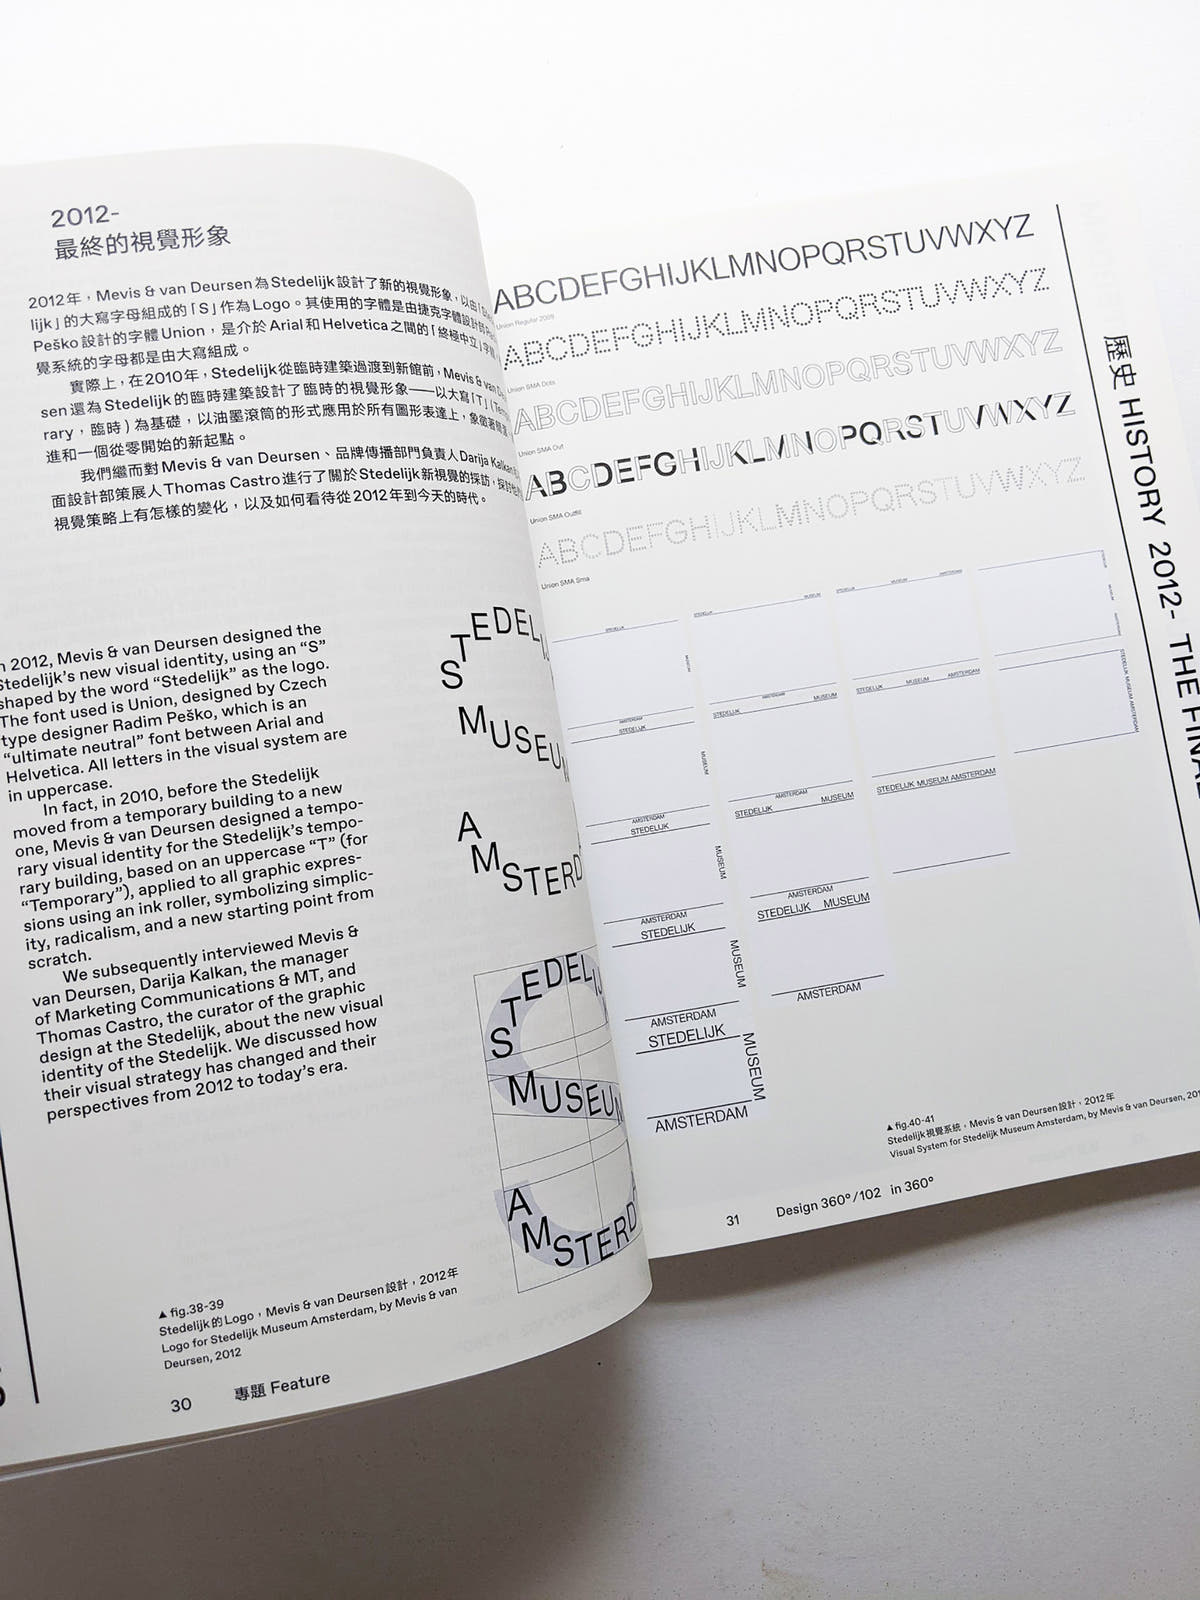 2012-
最終的視覺形象
2012年，Mevis & van Deursen為Stedelijk設計了新的視覺形象，以由「
lijk」的大寫字母組成的「S」作為Logo。其使用的字體是由捷克字體設計師
Peško設計的字體Union，是介於Arial和Helvetica之間的「終極中立」字體
覺系統的字母都是由大寫組成。
實際上，在2010年，Stedelijk從臨時建築過渡到新館前，Mevis & van
sen還為Stedelijk的臨時建築設計了臨時的視覺形象——以大寫「T」
rary，臨時）為基礎，以油墨滾筒的形式應用於所有圖形表達上，象徵著
進和一個從零開始的新起點。
我們繼而對Mevis & van Deursen、品牌傳播部門負責人Darija Kalkan
面設計部策展人Thomas Castro進行了關於Stedelijk新視覺的採訪，
視覺策略上有怎樣的變化，以及如何看待從2012年到今天的時代。
2012, Mevis & van Deursen designed the
Stedelijk's new visual identity, using an “S”
shaped by the word “Stedelijk” as the logo.
The font used is Union, designed by Czech
type designer Radim Peško, which is an
“ultimate neutral” font between Arial and
Helvetica. All letters in the visual system are
in uppercase.
In fact, in 2010, before the Stedelijk
moved from a temporary building to a new
one, Mevis & van Deursen designed a tempo-
rary visual identity for the Stedelijk's tempo-
rary building, based on an uppercase “T” (for
“Temporary”), applied to all graphic expres-
sions using an ink roller, symbolizing simplic-
ity, radicalism, and a new starting point from
scratch.
We subsequently interviewed Mevis &
van Deursen, Darija Kalkan, the manager
of Marketing Communications & MT, and
Thomas Castro, the curator of the graphic
design at the Stedelijk, about the new visual
identity of the Stedelijk. We discussed how
their visual strategy has changed and their
perspectives from 2012 to today's era.
STEDELIJ
MUSEUM
AMSTERD
STEDELIJ
MUSEUM
AMSTERD
▲ fig.38-39
Stedelijk的Logo，Mevis & van Deursen設計，2012年
Logo for Stedelijk Museum Amsterdam, by Mevis & van
Deursen, 2012
30 專題 Feature
ABCDEFGHIJKLMNOPQRSTUVWXYZ
Union Regular 2009
ABCDEFGHIJKLMNOPQRSTUVWXYZ
Union SMA Dots
ABCDEFGHIJKLMNOPQRSTUVWXYZ
Union SMA Out
ABCDEFGHIJKLMNOPQRSTUVWXYZ
Union SMA Outfill
ABCDEFGHIJKLMNOPQRSTUVWXYZ
Union SMA Sma
STEDELIJK
MUSEUM
AMSTERDAM
STEDELIJK
MUSEUM
AMSTERDAM
STEDELIJK
MUSEUM
AMSTERDAM
STEDELIJK
MUSEUM
AMSTERDAM
STEDELIJK
MUSEUM
AMSTERDAM
STEDELIJK MUSEUM
AMSTERDAM
STEDELIJK MUSEUM
AMSTERDAM
STEDELIJK MUSEUM
AMSTERDAM
STEDELIJK MUSEUM
AMSTERDAM
STEDELIJK MUSEUM AMSTERDAM
STEDELIJK MUSEUM AMSTERDAM
STEDELIJK MUSEUM AMSTERDAM
STEDELIJK MUSEUM AMSTERDAM
STEDELIJK MUSEUM AMSTERDAM
▲ fig.40-41
Stedelijk視覺系統，Mevis & van Deursen設計，2012年
Visual System for Stedelijk Museum Amsterdam, by Mevis & van Deursen,
31 Design 360° / 102 in 360°
歷史 HISTORY 2012- THE FINAL